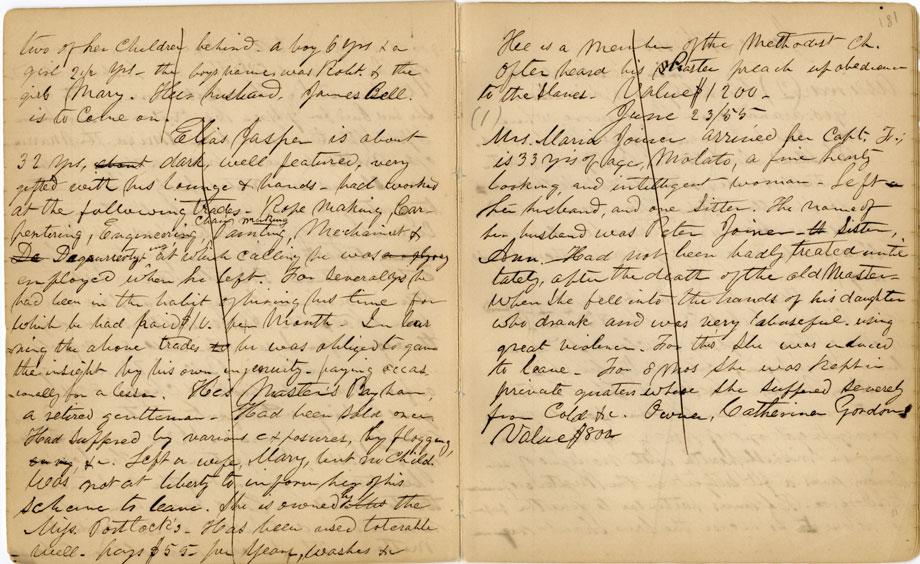 two of her Children behind. a boy 6 yrs & a
girl 2½ yrs - the boys name was Robt. & the
girls Mary. Her husband, James Bell.
is to Come on.
Elias Jasper is about
32 yrs, about dark, well featured, very
gifted with his lounge & hands - had worked
at the following trades - Rope making, Car-
pentering, Engineering, Chain making Painting, Mechanist &
Da Daguerreotyping at which calling he was
employed when he left. For several yrs he
had been in the habit of hiring his time for
which he had paid $10. per Month - In lear
ning the above trades to he was obliged to gain
the insight by his own ingenuity - paying occas
ionally for a lesson. His Master's Bayham,
a retired gentleman - Had been sold once
Had suffered by various exposures, by flogging,
&c. Left a wife, Mary, but no Child.
Was not at liberty to inform her of his
scheme to leave. She is owned by the
Miss. Portlock's - Has been used tolerable
well - pays $55 - per year, washes &
181
Hee is a Member of the Methodist Ch.
Often heard his Master preach up obedience
to the slaves - Value $1200.
(1) June 23/55
Mrs. Maria Joiner arrived per Capt. F.;
is 33 yrs of age, Molato, a fine hearty
looking and intelligent woman - Left
her husband, and one Sister. The name of
her husband was Peter Joiner - Sister,
Ann. - Had not been badly treated until
lately, after the death of the old Master -
when she fell into the hands of his daughter
who drank and was very abuseful. using
great violence. For this she was induced
to leave - For 8 mos she was Kept in
private quaters where she suffered severely
from Cold &c. Owner, Catherine Gordon
Value $800